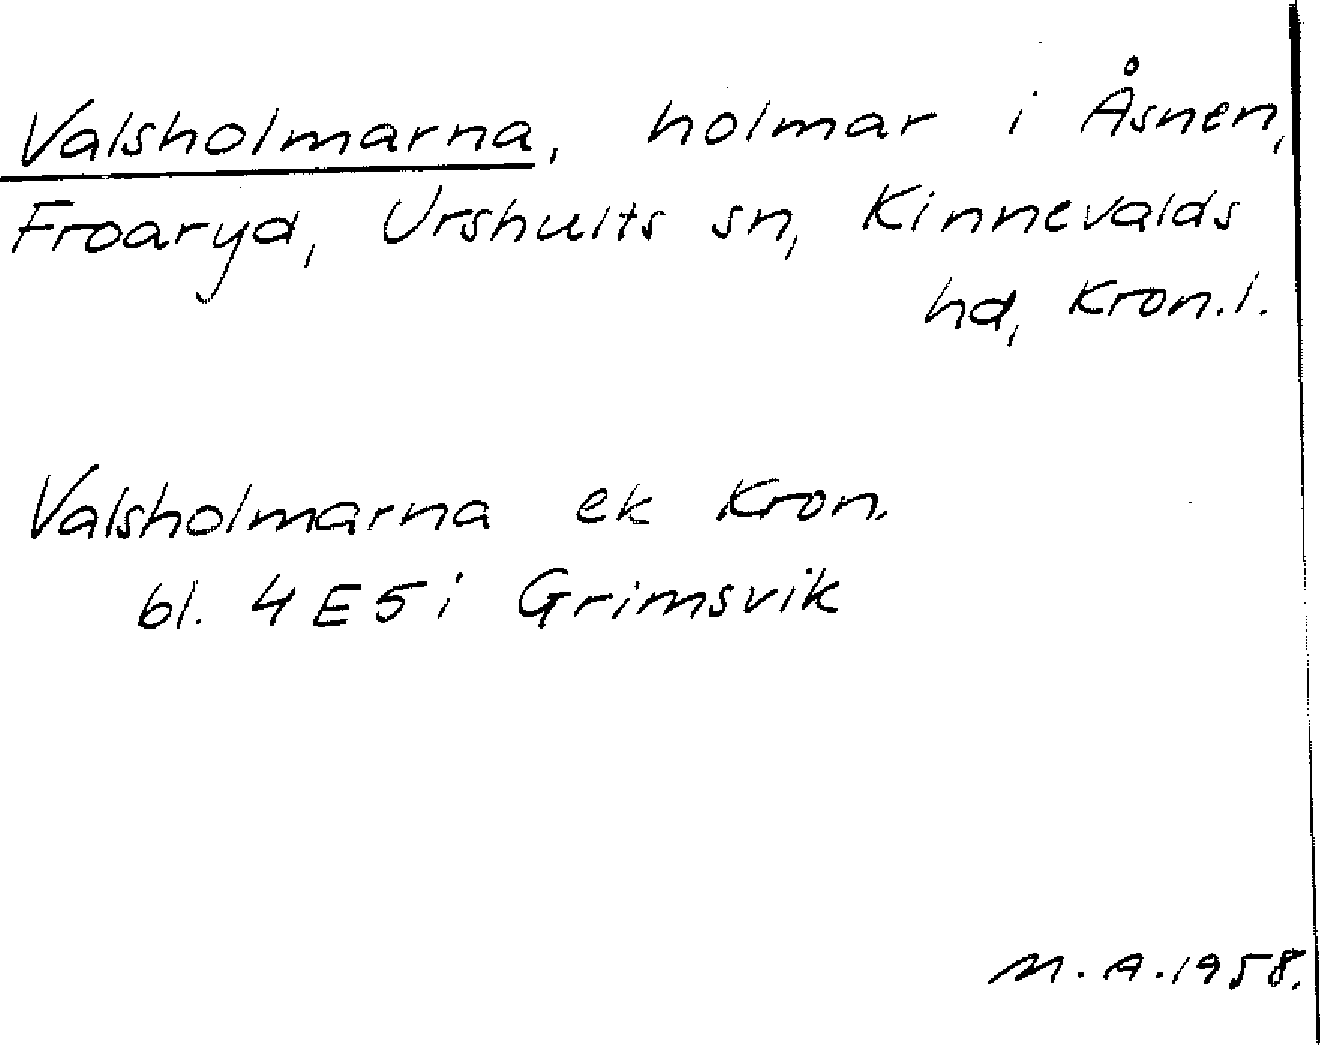 Valsholmarna, holmar i Åsnen,
Froaryd, Urshults sn, Kinnevalds
hd, Kron.l.
Valsholmarna ek Kron.
bl. 4 E 5 i Grimsvik
M.A.1958.